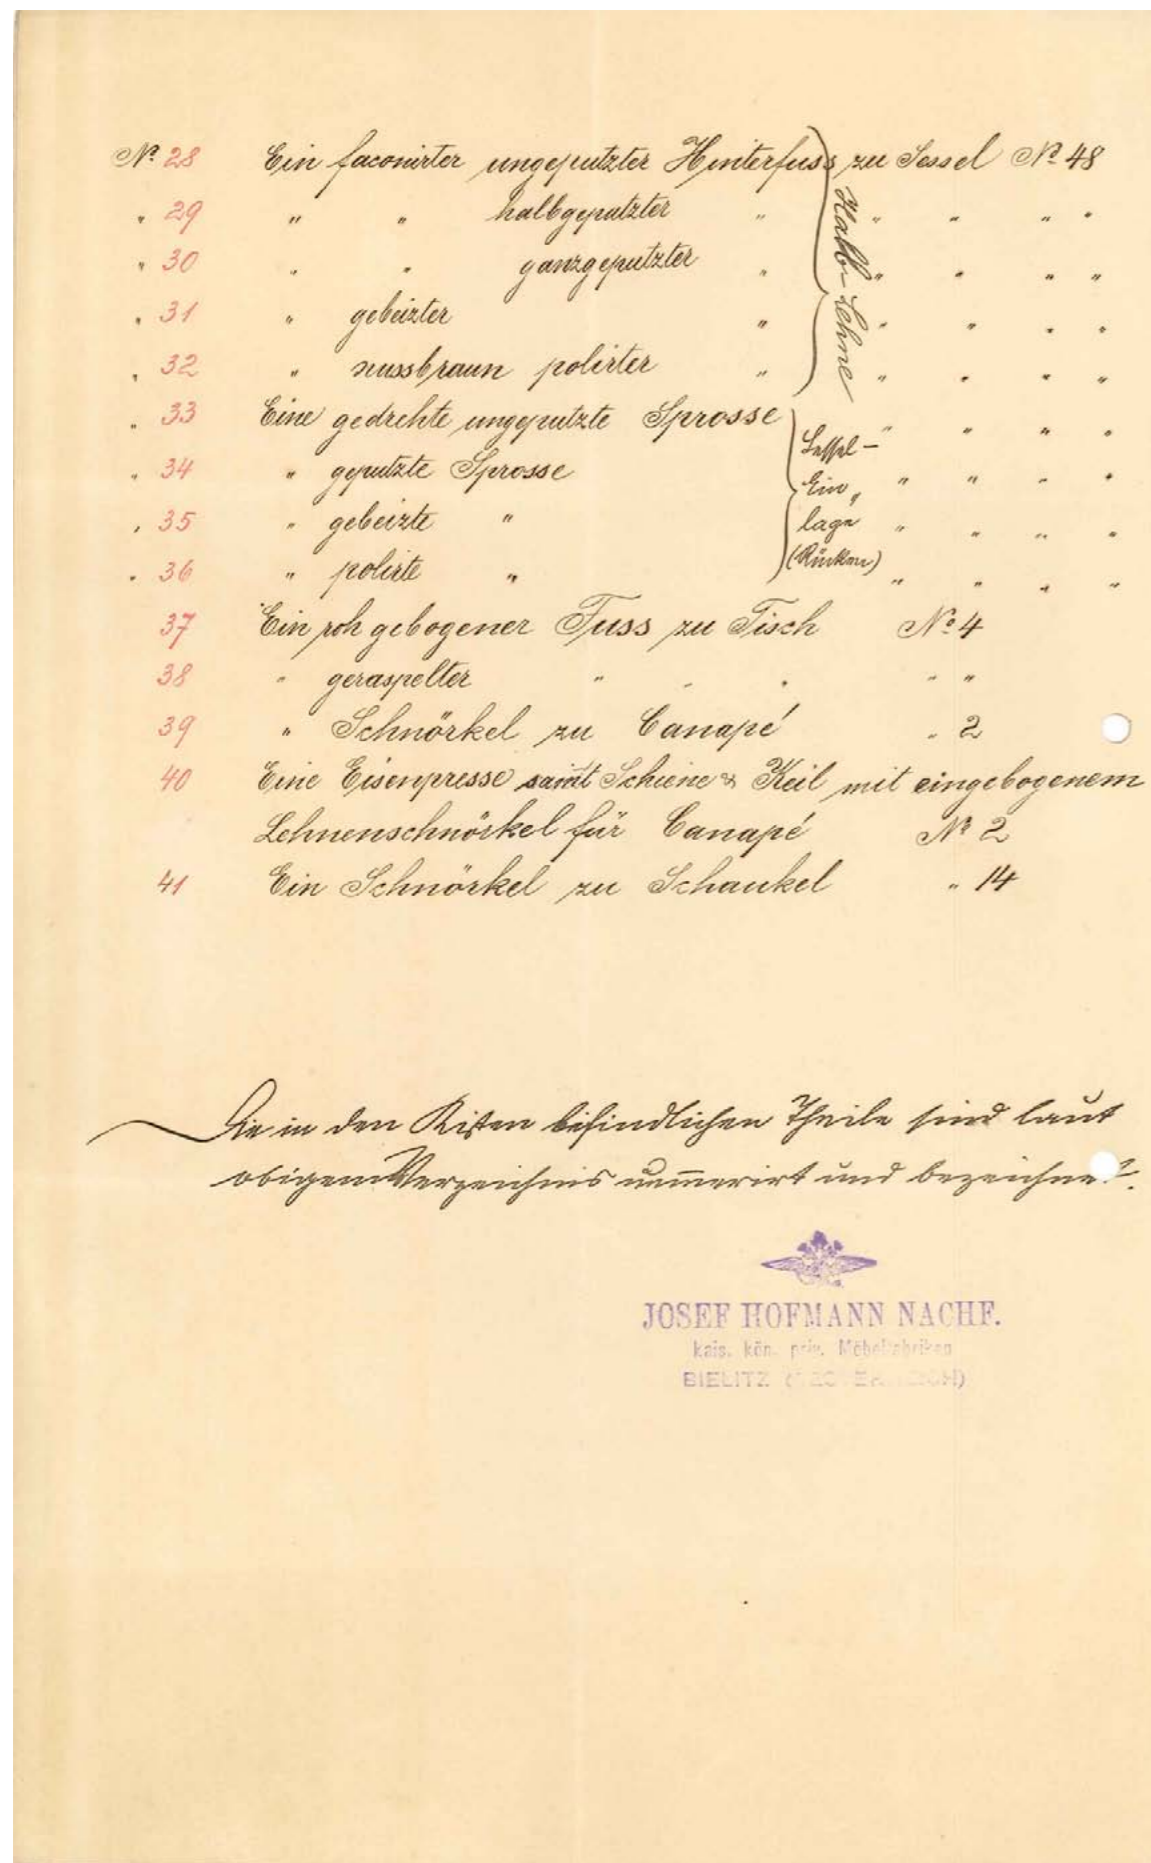 № 28 Ein faconirter ungeputzter Hinterfuss zu Sessel № 48
" 29 " " halbgeputzter " " " " "
" 30 " " ganzgeputzter " " " " "
" 31 " gebeizter " " " " "
" 32 " nussbraun polirter " " " " "
Halb-Lehne
" 33 Eine gedrehte ungeputzte Sprosse " " " "
" 34 " geputzte Sprosse " " " "
" 35 " gebeizte " " " " "
" 36 " polirte " " " " "
Sessel-
Ein"
lage
(Rücken)
37 Ein roh gebogener Fuss zu Tisch № 4
38 " geraspelter " " " " "
39 " Schnörkel zu Canapé " 2
40 Eine Eisenpresse sam̅t Schiene & Keil mit eingebogenem
Lehnenschnörkel für Canapé № 2
41 Ein Schnörkel zu Schaukel " 14
Die in den Kisten befindlichen Theile sind laut
obigem Verzeichnis num̅erirt und bezeichnet.
JOSEF HOFMANN NACHF.
kais. kön. priv. Möbelfabriken
BIELITZ